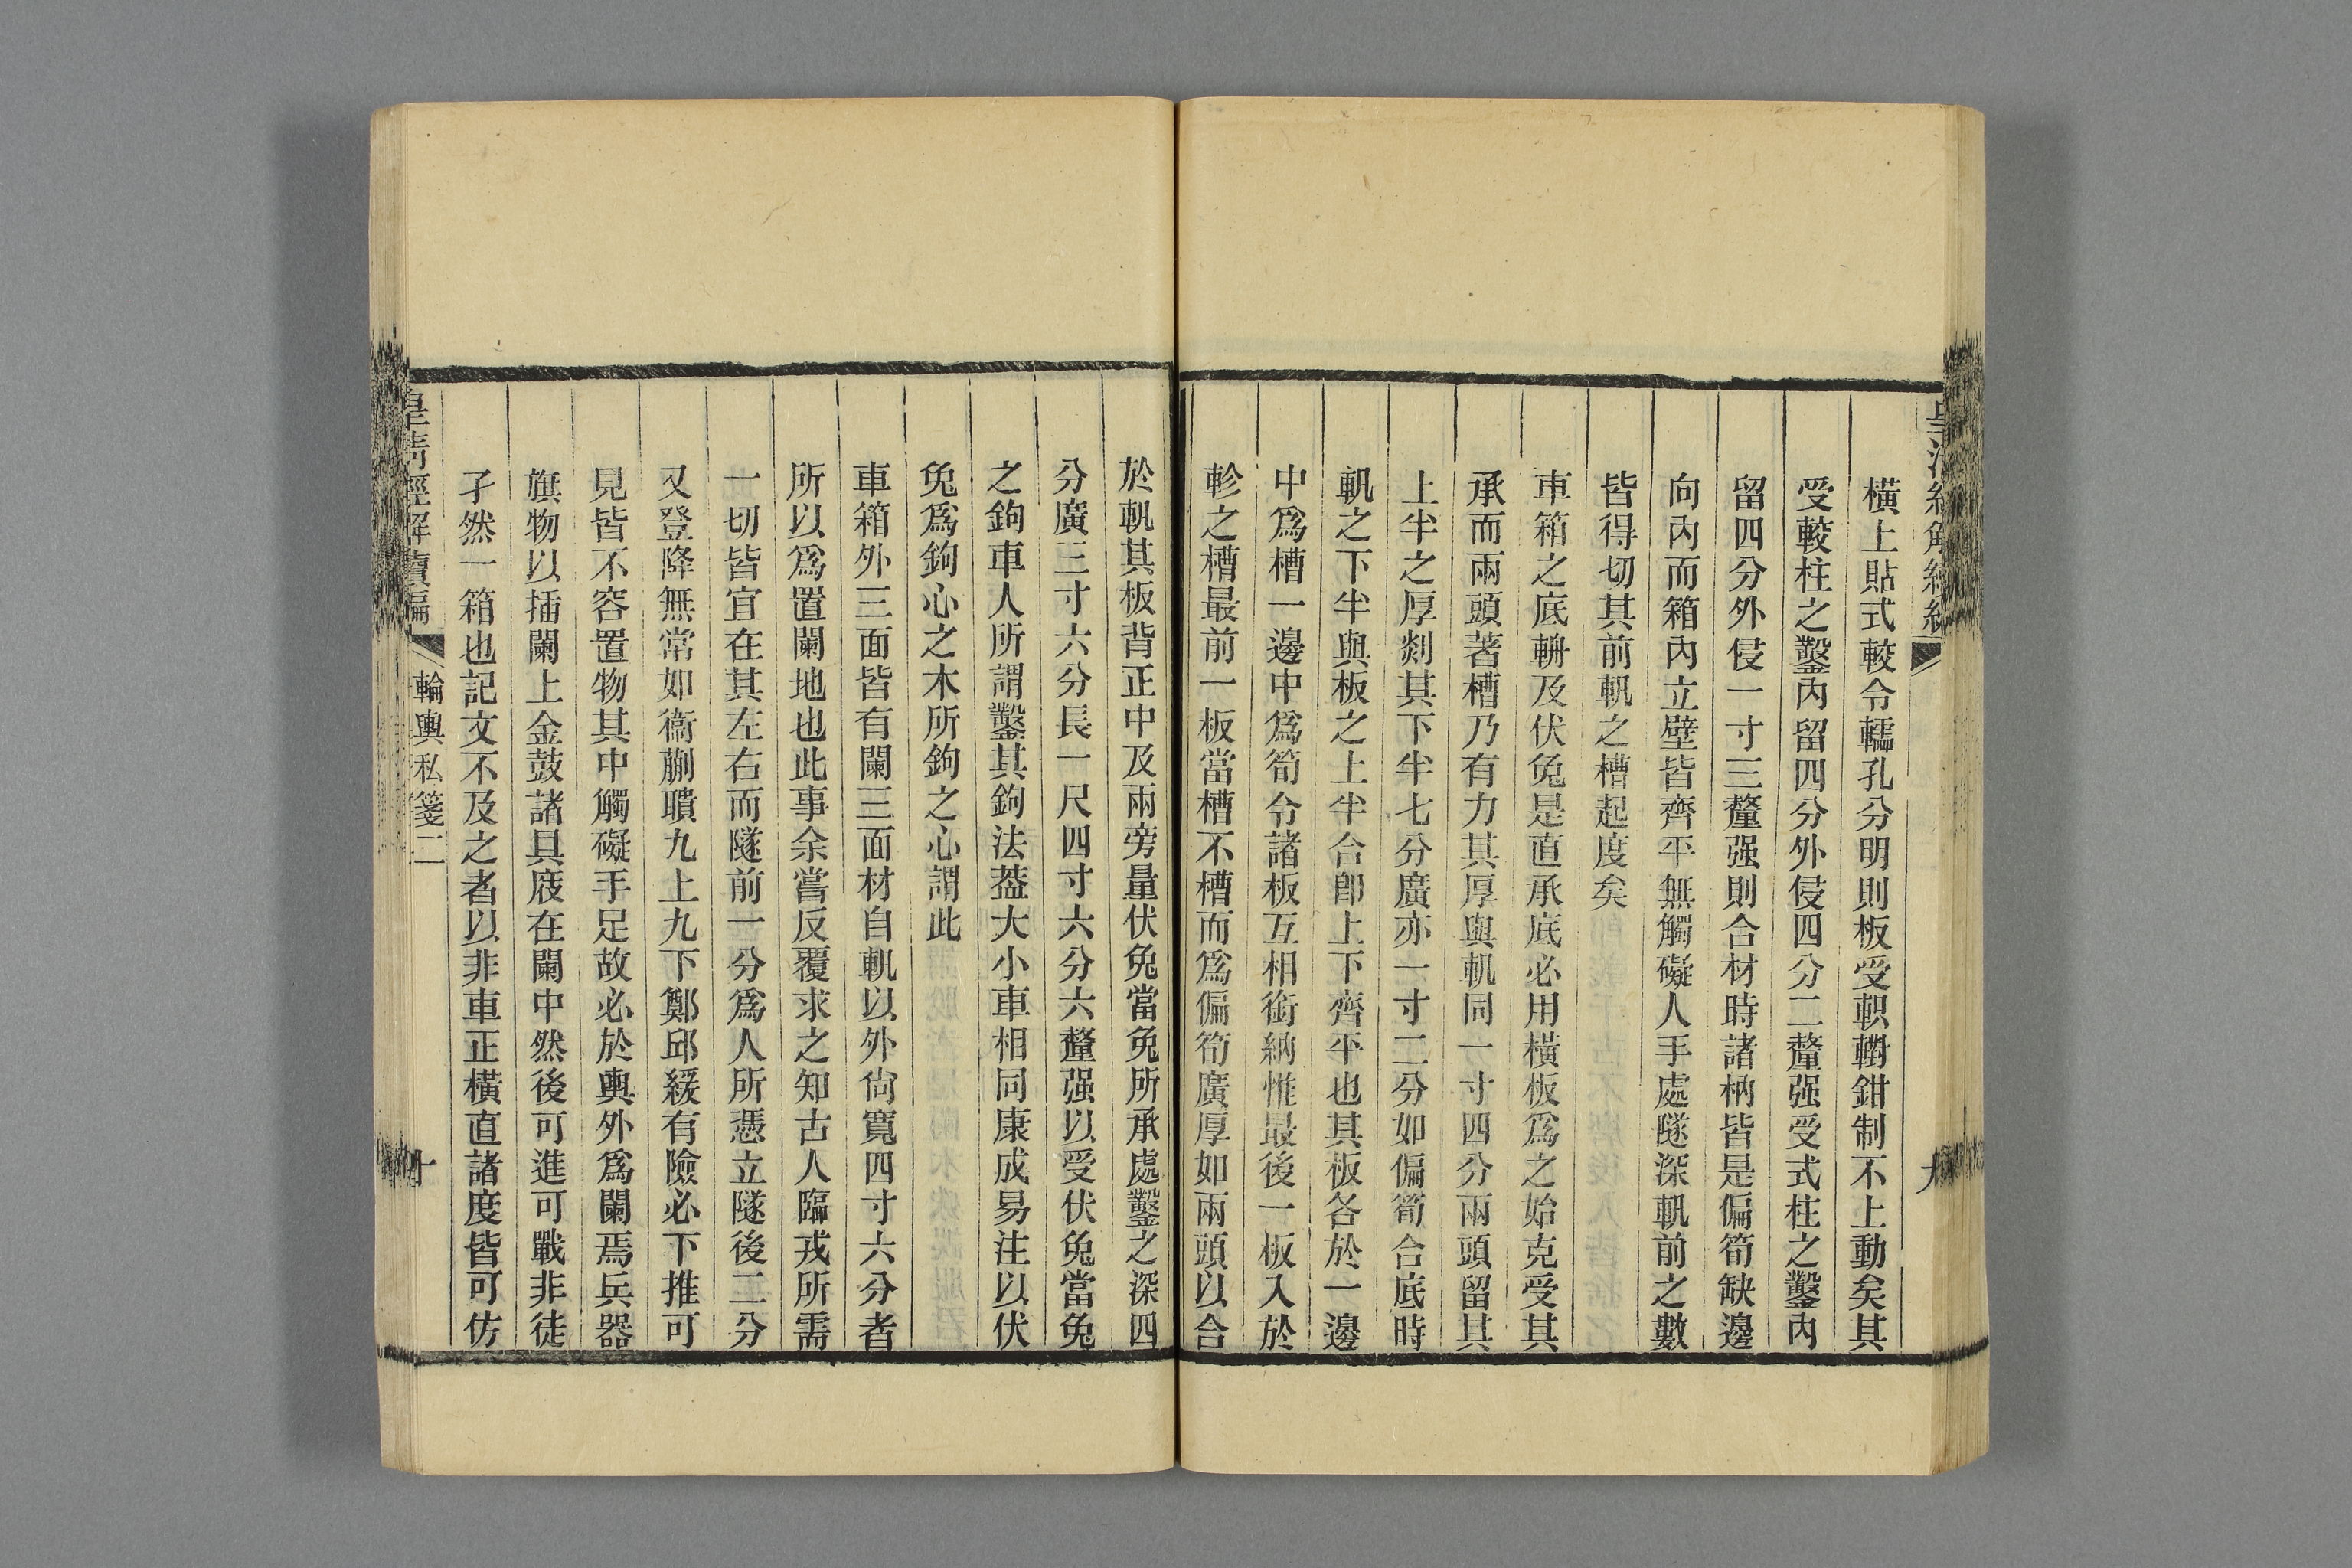 橫上貼式較令轜孔分明則板受軹轛鉗制不上動矣其
受較柱之鑿內留四分外侵四分二釐强受式柱之鑿內
留四分外侵一寸三釐强則合材時諸枘皆是偏筍缺邊
向內而箱內立壁皆齊平無觸礙人手處隧深軓前之數
皆得切其前軓之槽起度矣
車箱之底輈及伏兔是直承底必用橫板爲之始克受其
承而兩頭著槽乃有力其厚與軓同一寸四分兩頭留其
上半之厚剡其下半七分廣亦一寸二分如偏筍合底時
軓之下半與板之上半合卽上下齊平也其板各於一邊
中爲槽一邊中爲筍令諸板互相銜納惟最後一板入於
軫之槽最前一板當槽不槽而爲偏筍廣厚如兩頭以合
於軓其板背正中及兩旁量伏兔當兔所承處鑿之深四
分廣三寸六分長一尺四寸六分六釐强以受伏兔當兔
之鉤車人所謂鑿其鉤法葢大小車相同康成易注以伏
兔爲鉤心之木所鉤之心謂此
車箱外三面皆有闌三面材自軓以外尙寬四寸六分者
所以爲置闌地也此事余嘗反覆求之知古人臨戎所需
一切皆宜在其左右而隧前一分爲人所憑立隧後二分
又登降無常如衞蒯聵九上九下鄭邱緩有險必下推可
見皆不容置物其中觸礙手足故必於輿外爲闌焉兵器
旗物以插闌上金鼓諸具庪在闌中然後可進可戰非徒
孑然一箱也記文不及之者以非車正橫直諸度皆可仿
皇淸經解續編
輪輿私箋二
十